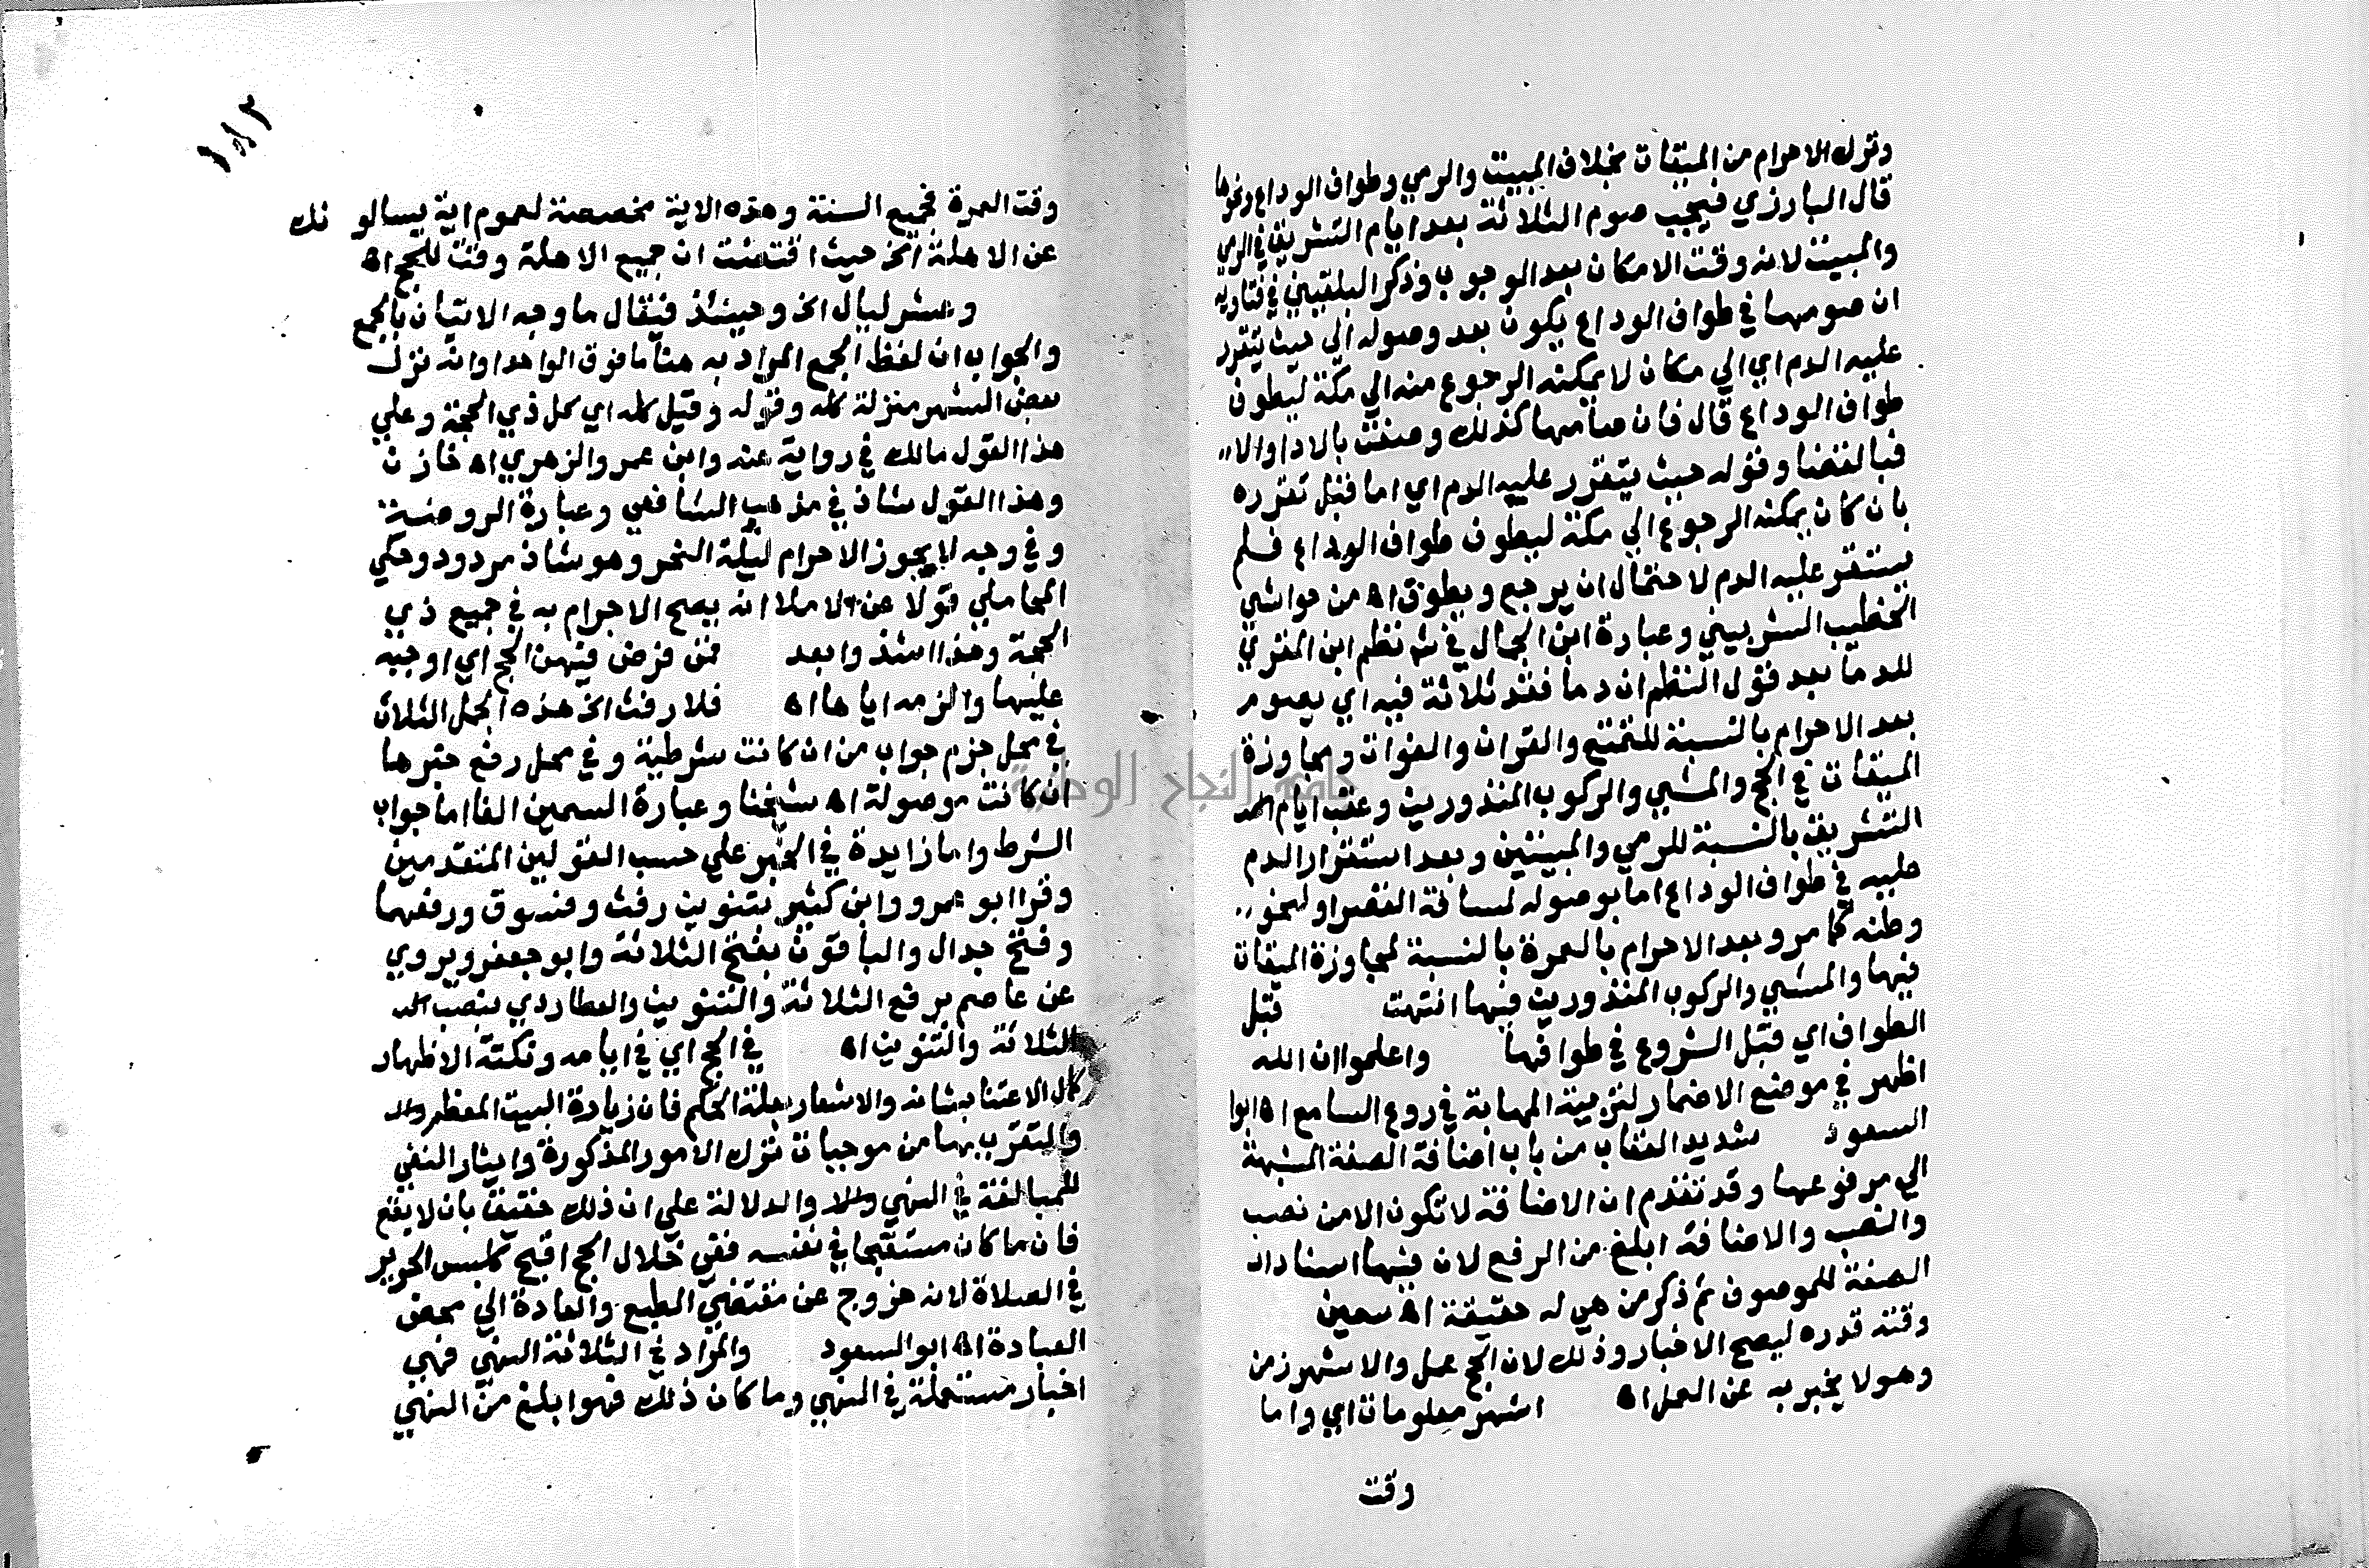 وترك الاحرام من الميقات بخلاف المبيت والرمي وطواف الوداع ونحوها
قال البارزي فيجب صوم الثلاثة بعد ايام التشريق في الرمي
والمبيت لانه وقت الامكان بعد الوجوب وذكر البلقيني في فتاويه
ان صومها في طواف الوداع يكون بعد وصوله الي حيث يتقرر
عليه الدم اي الي مكان لا يمكنه الرجوع منه الي مكة ليطوف
طواف الوداع قال فان صامها كذلك وصفت بالادا والا
فبالقضا وقوله حيث يتقرر عليه الدم اي اما قبل تقرره
بان كان يمكنه الرجوع الي مكة ليطوف طواف الوداع فلم
يستقر عليه الدم لاحتمال ان يرجع ويطوف اه من حواشي
الخطيب الشربيني وعبارة ابن الجمال في شر نظم ابن المقري
للدما بعد قول النظم ان دما فقد ثلاثة فيه اي يصوم
بعد الاحرام بالنسبة للتمتع والقران والفوات ومجاوزة
الميقات في الحج والمشي والركوب المنذورين وعقب ايام
التشريق بالنسبة للرمي والمبيتين وبعد استقرار الدم
عليه في طواف الوداع اما بوصوله لمسافة القصر او لنحو
وطنه كما مر وبعد الاحرام بالعمرة بالنسبة لمجاوزة الميقات
فيها والمشي والركوب المنذورين فيها انتهت قبل
الطواف اي قبل الشروع في طوافها واعلموا ان الله
اظهر في موضع الاضمار لتربية المهابة في روع السامع اه ابوا
السعود شديد العقاب من باب اضافة الصفة المشبهة
الي مرفوعها وقد تقدم ان الاضافة لا تكون الا من نصب
والنصب والاضافة ابلغ من الرفع لان فيها اسناد
الصفة للموصوف ثم ذكر من هي له حقيقة اه سمين
وقته قدره ليصح الاخبار وذلك لان الحج عمل والاشهر زمن
وهو لا يخبر به عن العمل اه اشهر معلومات اي واما
وقت
١٨٢
وقت العمرة فجميع السنة وهذه الاية مخصصة لعموم اية يسالونك
عن الاهلة الخ حيث اقتضت ان جميع الاهلة وقت للحج اه
وعشر ليال الخ وحينئذ فيقال ما وجه الاتيان بالجمع
والجواب ان لفظ الجمع المراد به هنا ما فوق الواحد او انه نزل
بعض الشهر منزلة كله وقوله وقيل كله اي كل ذي الحجة وعلي
هذا القول مالك في رواية عنه وابن عمر والزهري اه خازن
وهذا القول شاذ في مذهب الشافعي وعبارة الروضة
وفي وجه لا يجوز الاحرام ليلة النحر وهو شاذ مردود وحكي
المحاملي قولا عن الاملا انه يصح الاحرام به في جميع ذي
الحجة وهذا اشذ وابعد فمن فرض فيهن الحج اي اوجبه
عليها والزمه اياها اه فلا رفث الخ هذه الجمل الثلاث
في محل جزم جواب من ان كانت شرطية وفي محل رفع خبرها
ان كانت موصولة اه شيخنا وعبارة السمين الفا اما جواب
الشرط واما زايدة في الخبر علي حسب القولين المتقدمين
وقرا ابو عمرو وابن كثير بتنوين رفث وفسوق ورفعهما
وفتح جدال والباقون بفتح الثلاثة وابو جعفر ويروي
عن عاصم برفع الثلاثة والتنوين والعطاردي بنصب
الثلاثة والتنوين اه في الحج اي في ايامه ونكتة الاظهار
كمال الاعتنا بشانه والاشعار بعلة الحكم فان زيارة البيت المعظم
والتقرب بها من موجبات ترك الامور المذكورة وايثار النفي
للمبالغة في النهي والدلالة علي ان ذلك حقيق بان لا يقع
فان ما كان مستقبحا في نفسه ففي خلال الحج اقبح كلبس الحرير
في الصلاة لانه خروج عن مقتضي الطبع والعادة الي محض
العبادة اه ابو السعود والمراد في الثلاثة النهي فهي
اخبار مستعملة في النهي وما كان ذلك فهو ابلغ من النهي
جامعة النجاح الوطنية